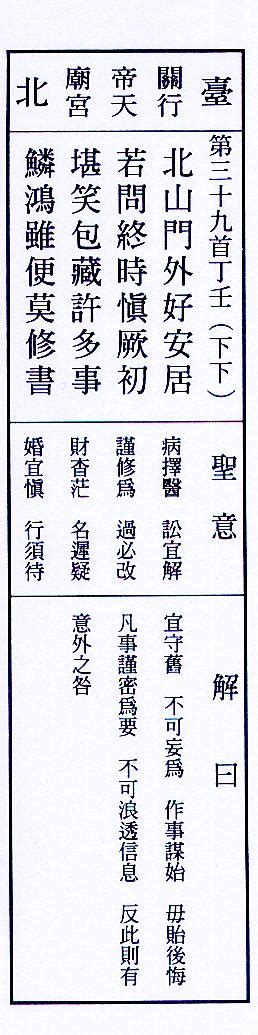 臺北
關帝廟
行天宮
第三十九首丁壬(下下)
北山門外好安居
若問終時愼厥初
堪笑包藏許多事
鱗鴻雖便莫修書
聖意
病擇醫 訟宜解
謹修爲 過必改
財杳茫 名遲疑
婚宜愼 行須待
解曰
宜守舊 不可妄爲 作事謀始 毋貽後悔
凡事謹密爲要 不可浪透信息 反此則有
意外之咎